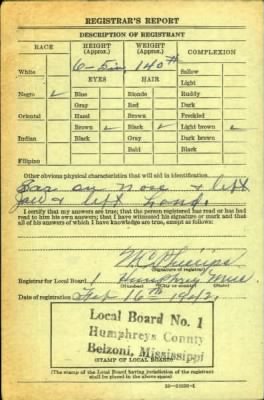 REGISTRAR'S REPORT
DESCRIPTION OF REGISTRANT
RACE HEIGHT (Approx.) WEIGHT (Approx.) COMPLEXION
6-5in 140#
White Sallow
EYES HAIR Light
Negro ✓ Blue Blonde Ruddy
Gray Red Dark
Oriental Hazel Brown Freckled
Brown ✓ Black ✓ Light brown ✓
Indian Black Gray Dark brown
Bald Black
Filipino
Other obvious physical characteristics that will aid in identification
Scar on nose & left
jaw & left hand.
I certify that my answers are true; that the person registered has read or has had
read to him his own answers; that I have witnessed his signature or mark and that
all of his answers of which I have knowledge are true, except as follows:
Mc Phillips
(Signature of registrar)
Registrar for Local Board 1 Humphrey Miss.
(Number) (City or county) (State)
Date of registration Feb 16th 1942.
Local Board No. 1
Humphreys County
Belzoni, Mississippi
(STAMP OF LOCAL BOARD)
(The stamp of the Local Board having jurisdiction of the registrant
shall be placed in the above space.)